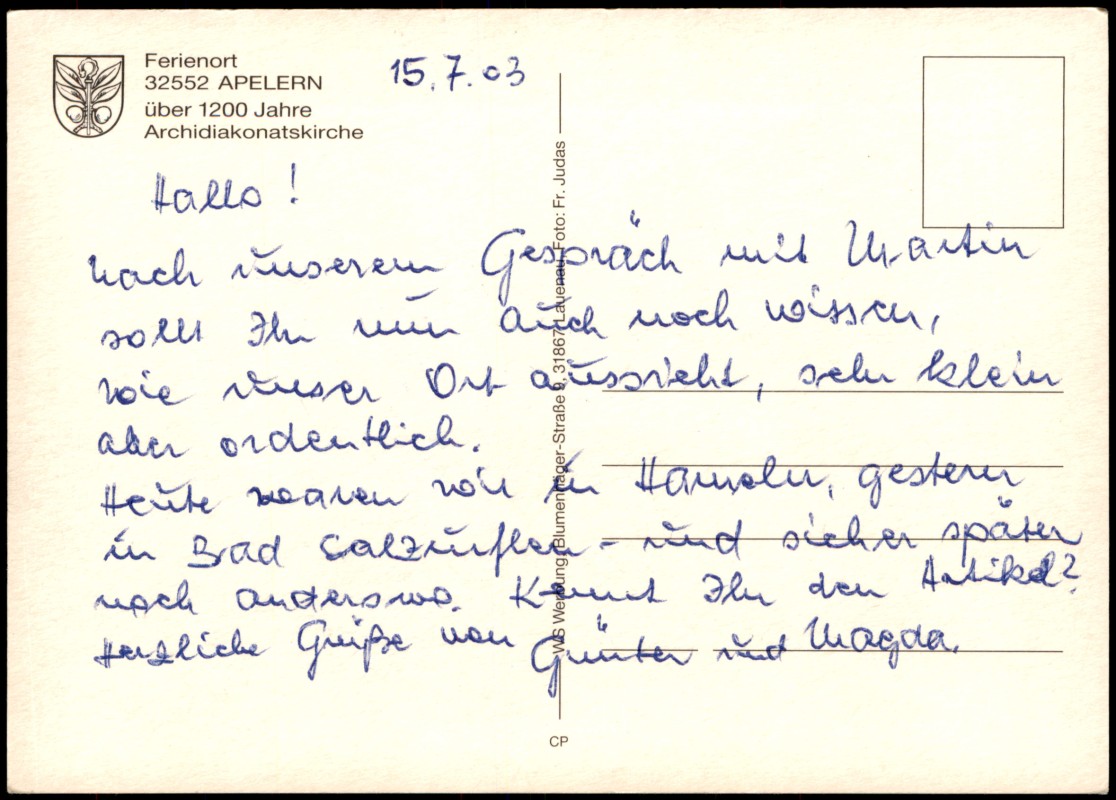 Ferienort
32552 APELERN
über 1200 Jahre
Archidiakonatskirche
15.7.03
Hallo!
nach unserem Gespräch mit Martin
sollt Ihr nun auch noch wissen,
wie unser Ort aussieht, sehr klein
aber ordentlich.
Heute waren wir in Hameln, gestern
in Bad Salzuflen - und sicher später
noch anderswo. Kennt Ihr den Artikel?
Herzliche Grüße von Günter und Magda.
WS Werbung, Blumenhager-Straße 9, 31867 Lauenau, Foto: Fr. Judas
CP